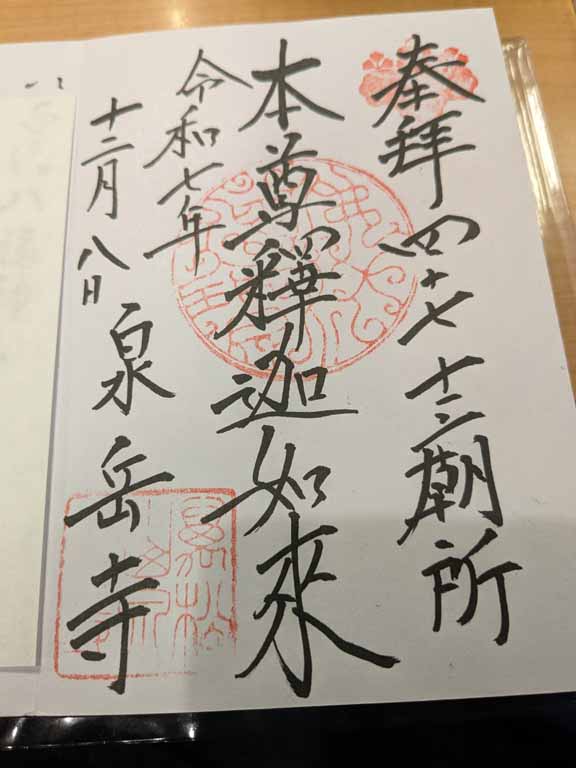 奉拜 四十七士廟所
本尊釋迦如來
令和七年
十二月八日 泉岳寺